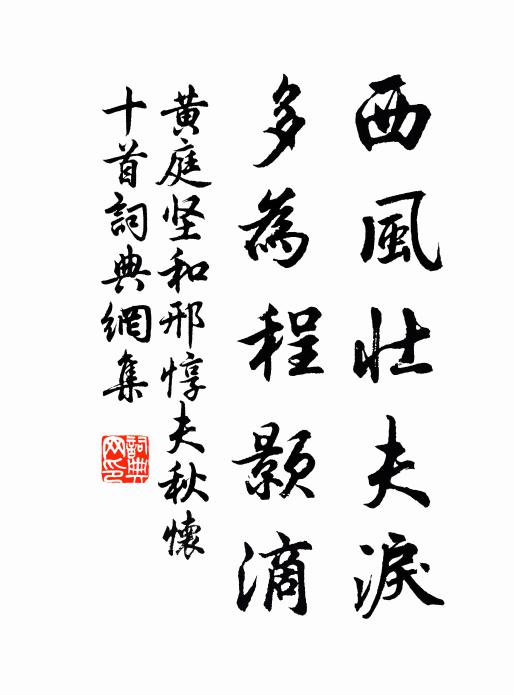 西風壯夫淚
多為程顥滴
黃庭坚和邢惇夫秋懷
十首詞典網集
詞典网印